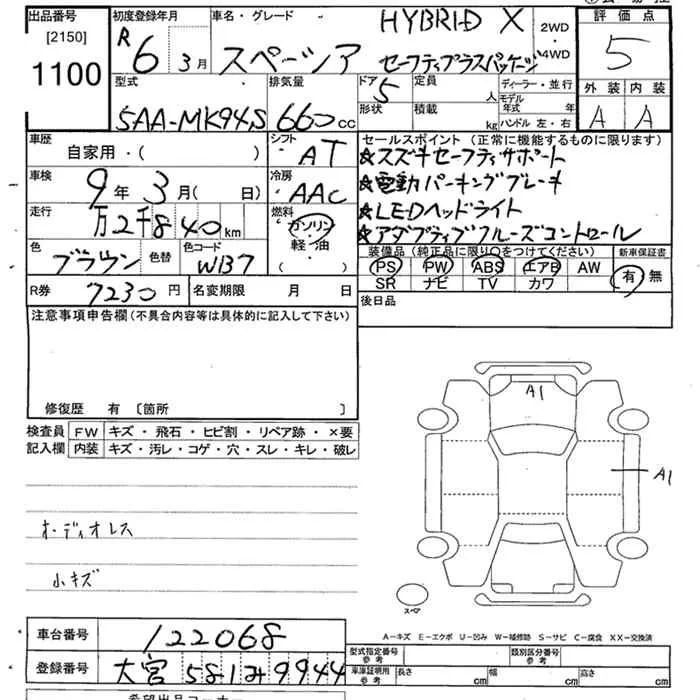 出品番号
[2150]
1100
初度登録年月
R6 3月
車名・グレード
HYBRID X
スペーシア セーフティプラスパッケージ
2WD
・4WD
評価点
5
外装 内装
A A
型式
5AA-MK94S
排気量
660cc
ドア 5
形状
定員
人
積載
kg
ディーラー・並行
モデル年式 年
ハンドル 左・右
車歴
自家用・( )
シフト
AT
車検
9年3月( 日)
冷房
AAC
走行
万2千840km
燃料
ガソリン
軽・油
・( )
色
ブラウン
色替
色コード
WB7
セールスポイント (正常に機能するものに限ります)
★スズキセーフティサポート
★電動パーキングブレーキ
★LEDヘッドライト
★アダプティブクルーズコントロール
装備品 (純正品に限り○をつけてください)
PS PW ABS エアB AW
SR ナビ TV カワ
新車保証書
有・無
R券 7230円
名変期限 月 日
後日品
注意事項申告欄 (不具合内容等は具体的に記入して下さい)
修復歴 有 〔箇所 〕
検査員記入欄
FW キズ・飛石・ヒビ割・リペア跡・×要
内装 キズ・汚レ・コゲ・穴・スレ・キレ・破レ
オーディオレス
小キズ
A1
A1
スペア
A-キズ E-エクボ U-凹み W-補修跡 S-サビ C-腐食 XX-交換済
車台番号 122068
登録番号 大宮 581 み 9944
型式指定番号
参考
類別区分番号
参考
車庫証明用
参考
長さ cm
幅 cm
高さ cm
希望出品コーナー